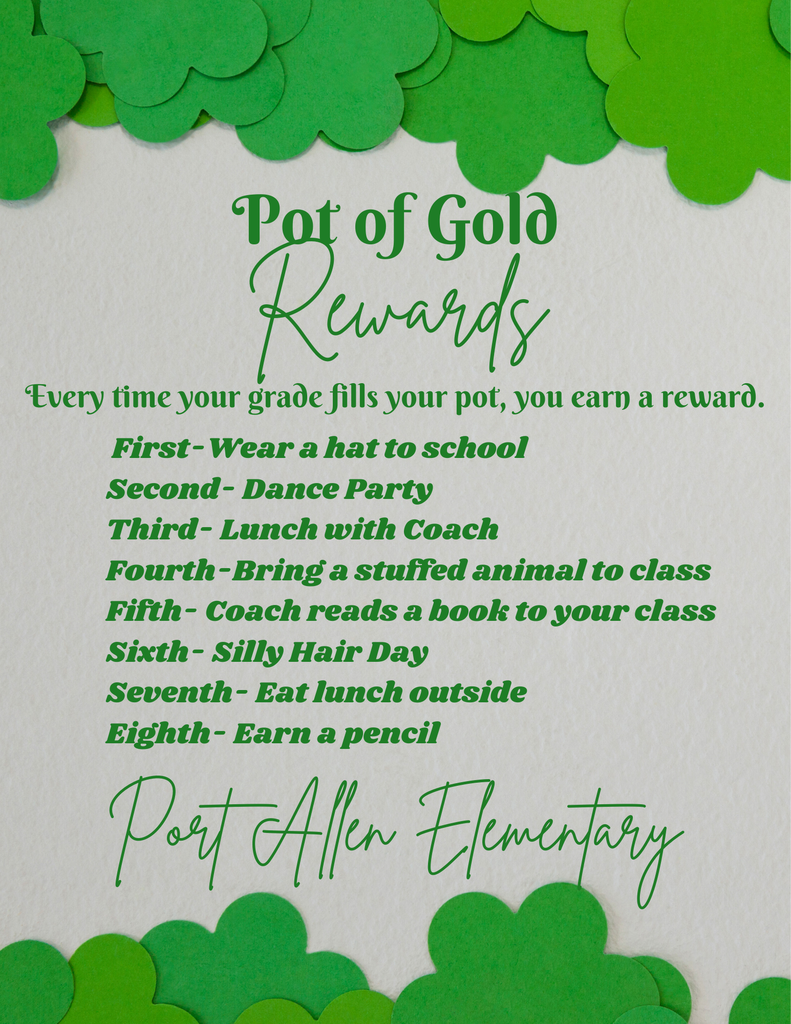 Pot of Gold
Rewards
Every time your grade fills your pot, you earn a reward.
First-Wear a hat to school
Second- Dance Party
Third- Lunch with Coach
Fourth-Bring a stuffed animal to class
Fifth- Coach reads a book to your class
Sixth- Silly Hair Day
Seventh- Eat lunch outside
Eighth- Earn a pencil
Port Allen Elementary